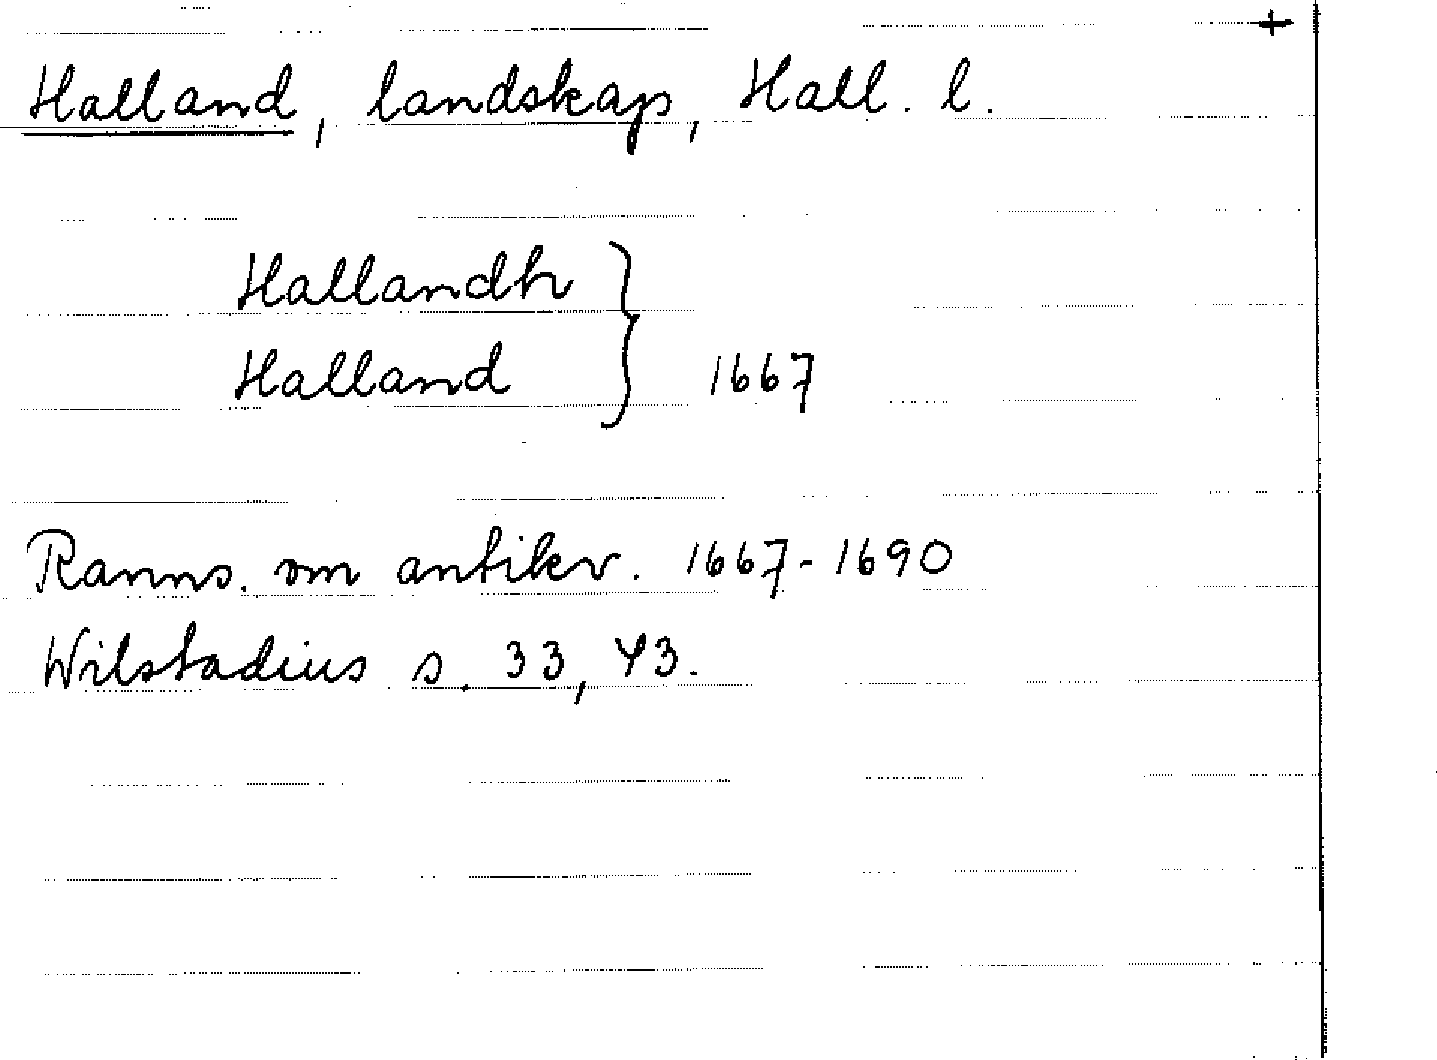 Halland, landskap, Hall. l.
Hallandh
Halland } 1667
Ranns. om antikv. 1667-1690
Wilstadius s. 33, 43.